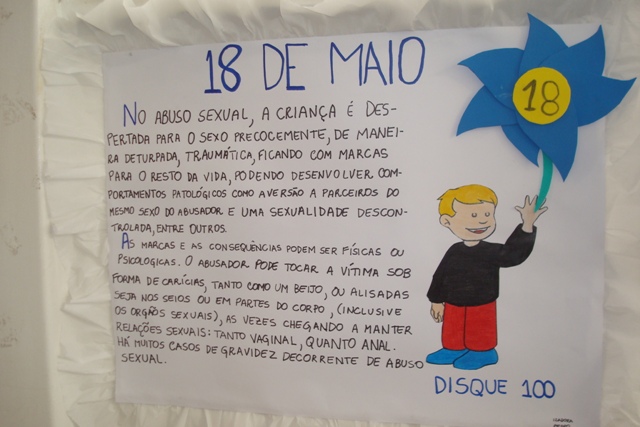 18 DE MAIO
18
NO ABUSO SEXUAL, A CRIANÇA É DES-
PERTADA PARA O SEXO PRECOCEMENTE, DE MANEI-
RA DETURPADA, TRAUMÁTICA, FICANDO COM MARCAS
PARA O RESTO DA VIDA, PODENDO DESENVOLVER COM-
PORTAMENTOS PATOLÓGICOS COMO AVERSÃO A PARCEIROS DO
MESMO SEXO DO ABUSADOR E UMA SEXUALIDADE DESCON-
TROLADA, ENTRE OUTROS.
AS MARCAS E AS CONSEQUÊNCIAS PODEM SER FÍSICAS OU
PSICOLOGICAS. O ABUSADOR PODE TOCAR A VÍTIMA SOB
FORMA DE CARÍCIAS, TANTO COMO UM BEIJO, OU ALISADAS
SEJA NOS SEIOS OU EM PARTES DO CORPO, (INCLUSIVE
OS ORGÃOS SEXUAIS), AS VEZES CHEGANDO A MANTER
RELAÇÕES SEXUAIS: TANTO VAGINAL, QUANTO ANAL.
HÁ MUITOS CASOS DE GRAVIDEZ DECORRENTE DE ABUSO
SEXUAL.
DISQUE 100